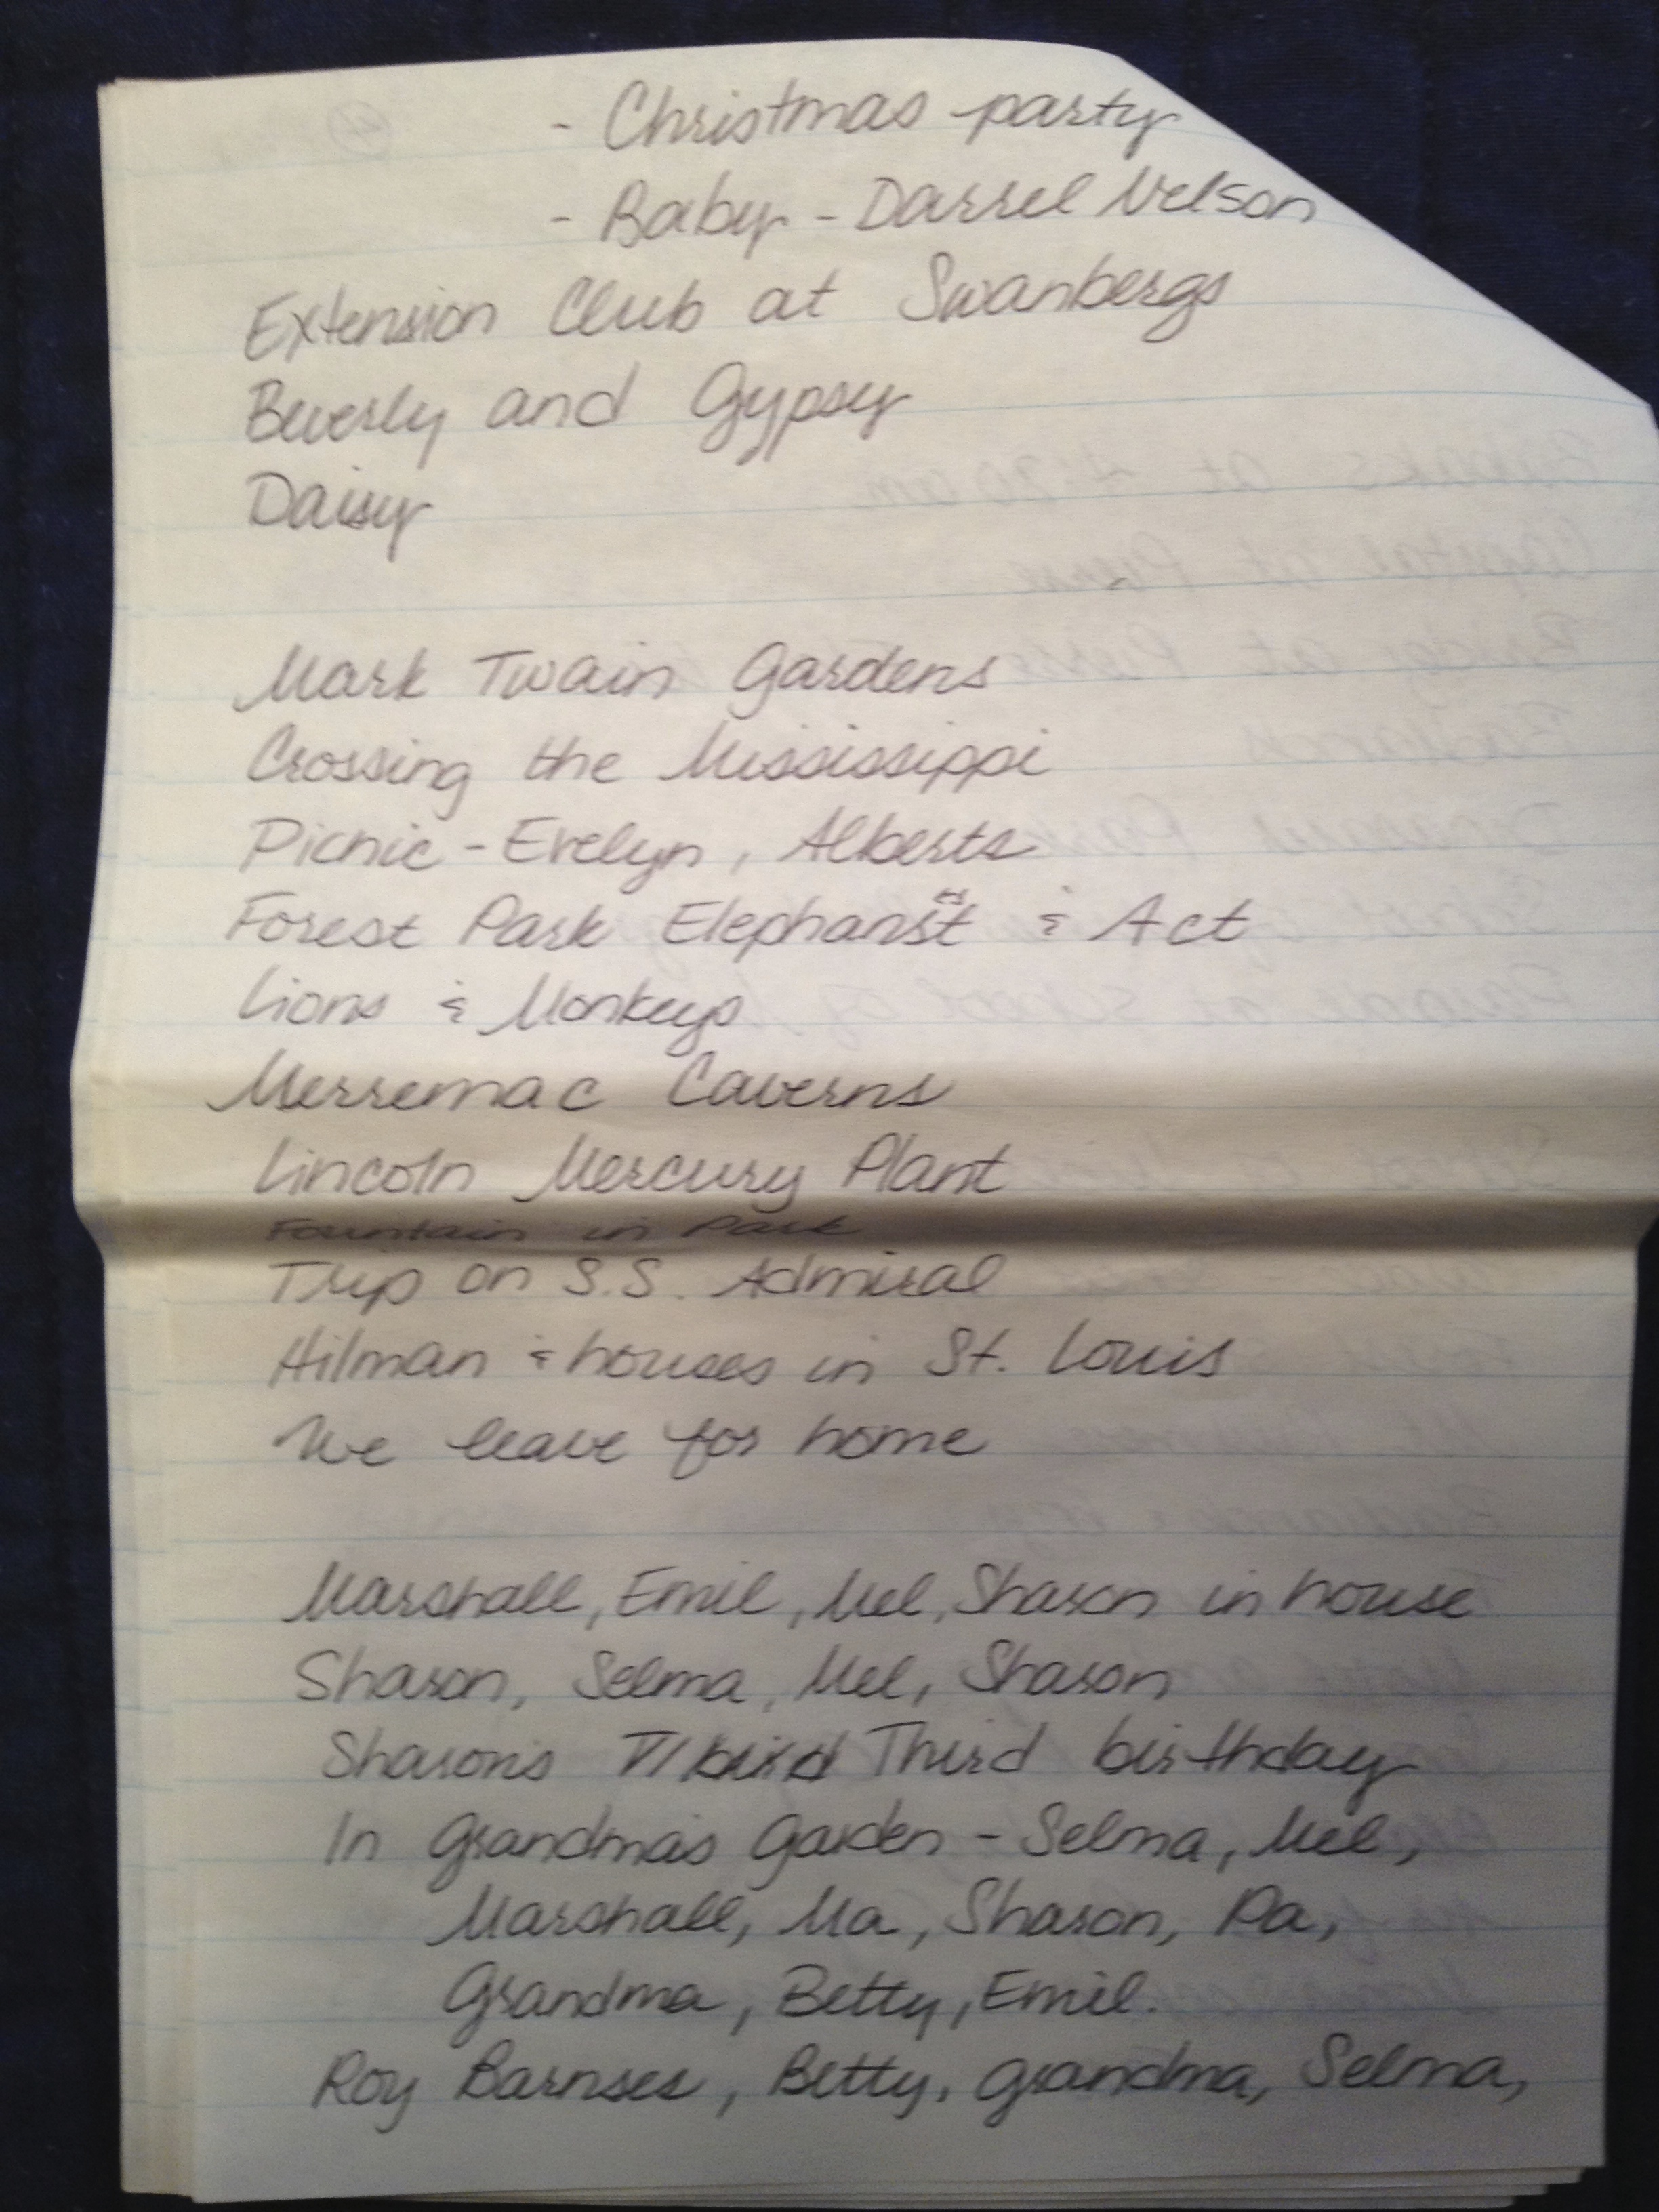 - Christmas party
- Baby - Darrel Nelson
Extension Club at Swanbergs
Beverly and Gypsy
Daisy
Mark Twain Gardens
Crossing the Mississippi
Picnic - Evelyn, Alberts
Forest Park Elephant & Act
Lions & Monkeys
Merremac Caverns
Lincoln Mercury Plant
Fountain in Park
Trip on S.S. Admiral
Hilman & houses in St. Louis
We leave for home
Marshall, Emil, Mel, Sharon in house
Sharon, Selma, Mel, Sharon
Sharon's Third birthday
In Grandma's Garden - Selma, Mel,
Marshall, Ma, Sharon, Pa,
Grandma, Betty, Emil.
Roy Barnses, Betty, Grandma, Selma,